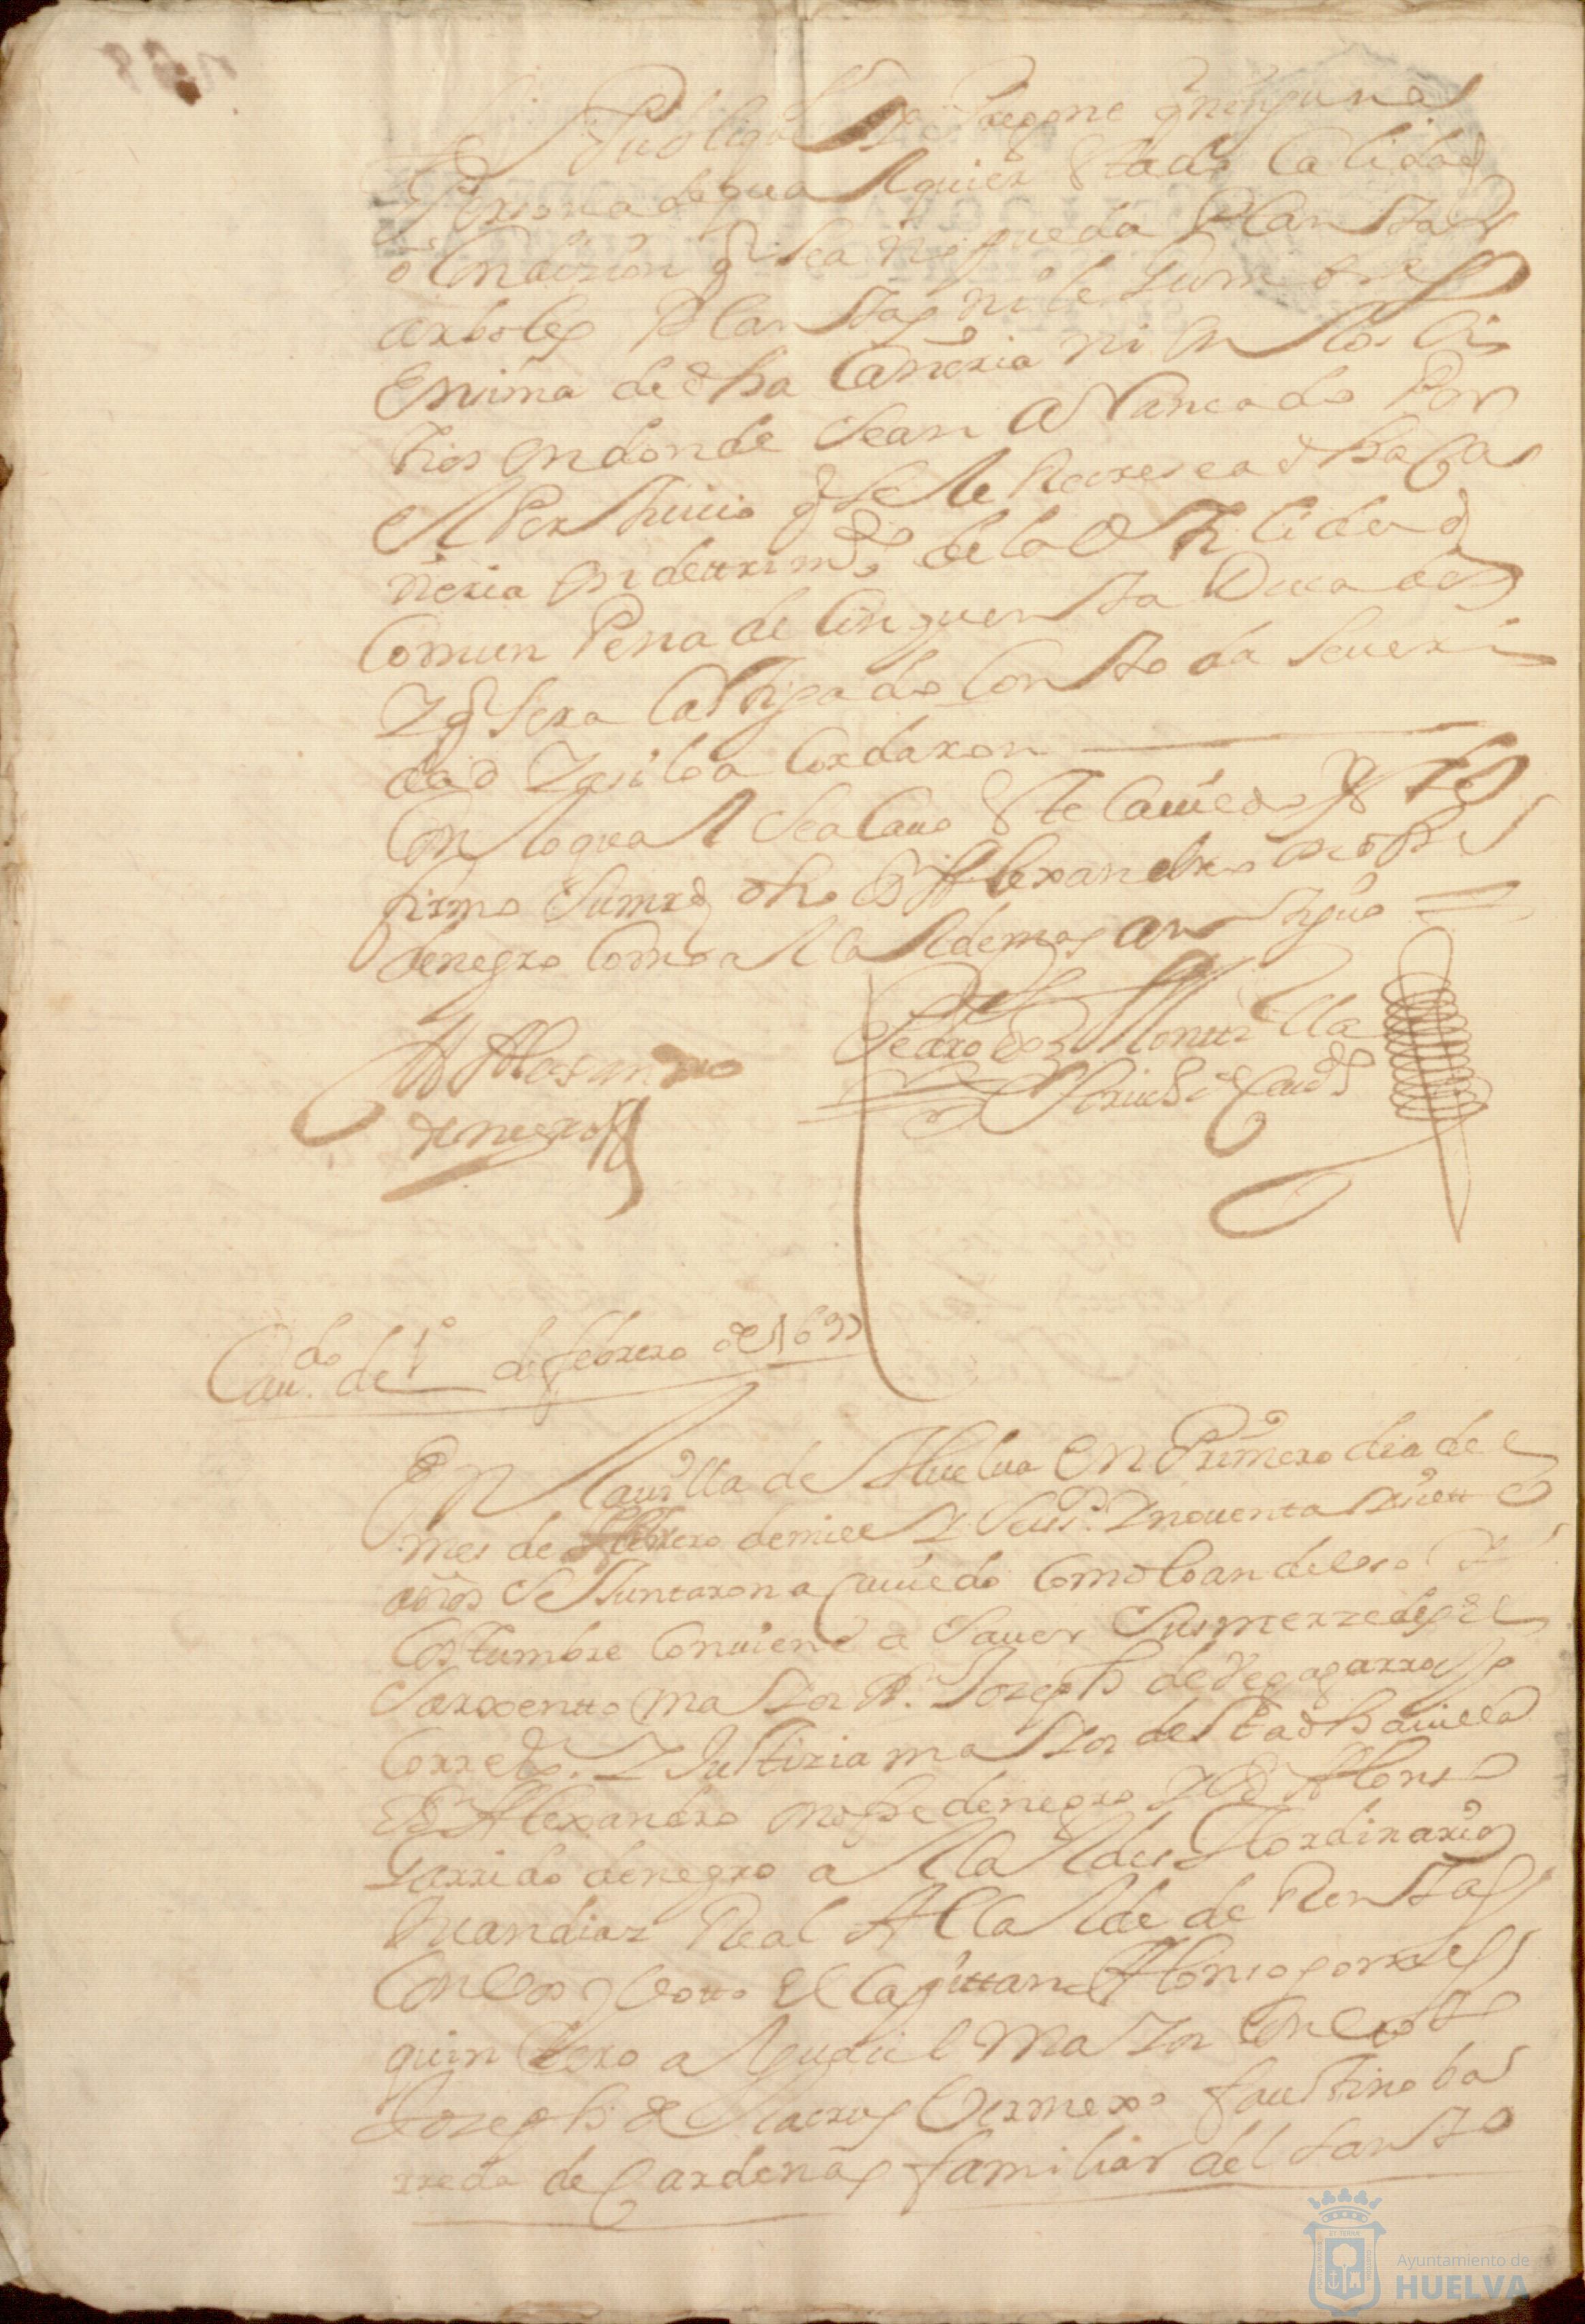 Publiq Pregone q ninguna
Persona de qualquier Stado Calidad
o Condizion q sea no pueda Plantar
arboles Plantas ni legumbres
Ensima de dha Cañeria ni en los Si
tios en donde sean aVanzado Por
el Perjuicio q se le Recrese a dha Ca
ñeria en detrimto de la Vtilidad
Comun Pena de Cinquenta Ducados
Y q sera Castigado Con toda Seueri
dad Y asi lo a Cordaron
Con lo qual Se a Cauo Ste Cauiedo Y lo
firmo Su mrd dho Dn Alexandro onofre
de negro Como alcalde mas antiguo =
Dn Alexandro
de negro
Pedro de Montilla
Escriu de Caudo
Cauo. de 1º de febrero de 1699
En la Villa de Huelua En Primero dia de
mes de febrero de mill Y Seisº Y nouenta Y nueue
años Se Juntaron a Cauiedo Como lo an de Vso Y
Costumbre Conuiene a Sauer Sus merzedes el
Sarxento maYor Dn Joseph de Vegagarrosso
Corredor. Y Justizia maYor de Sta dha uilla
Dn Alexandro onofre de negro Y Dn Alonso
Garrido de negro alcaldes Hordinarios
Juan diaz Real Alcalde de Rentas
Con Vos y Voto El Capittan Alonso gomes
quintero alguacil maYor Con Voto
Joseph de la crus Vermexo faustino ba
rreda de Cardenas familiar del Santo
Ayuntamiento de
HUELVA